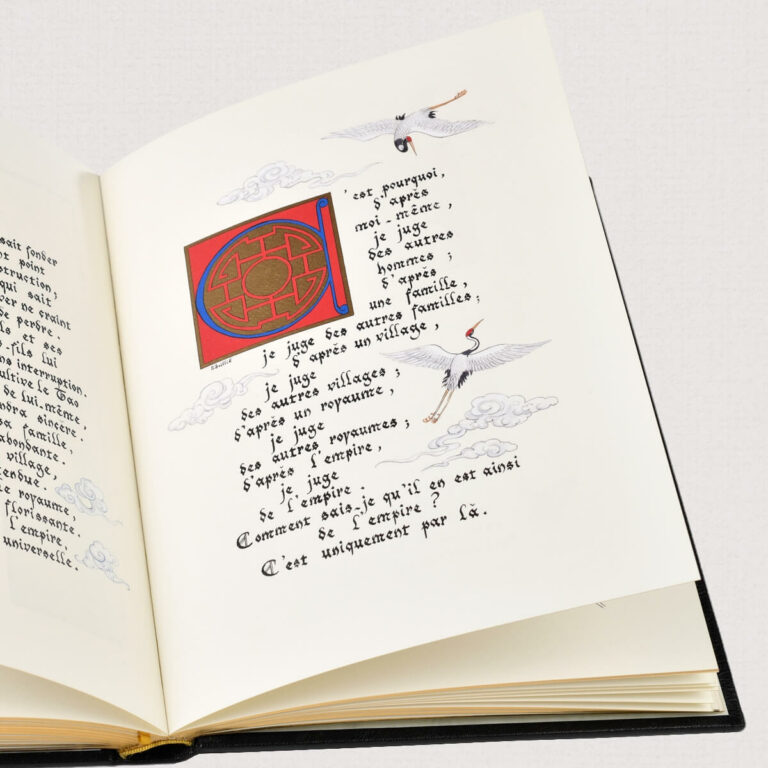 sait fonder
t point
struction,
qui sait
ver ne craint
de perdre.
ls et ses
s-fils lui
ns interruption.
ultive le Tao
de lui-même
ndra sincère.
sa famille,
abondante.
village,
tendue.
e royaume,
florissante.
l'empire,
universelle.
C'est pourquoi,
d'après
moi-même,
je juge
des autres
hommes ;
d'après
une famille,
je juge des autres familles ;
d'après un village,
je juge
des autres villages ;
d'après un royaume,
je juge
des autres royaumes ;
d'après l'empire,
je juge
de l'empire.
Comment sais-je qu'il en est ainsi
de l'empire ?
C'est uniquement par là.